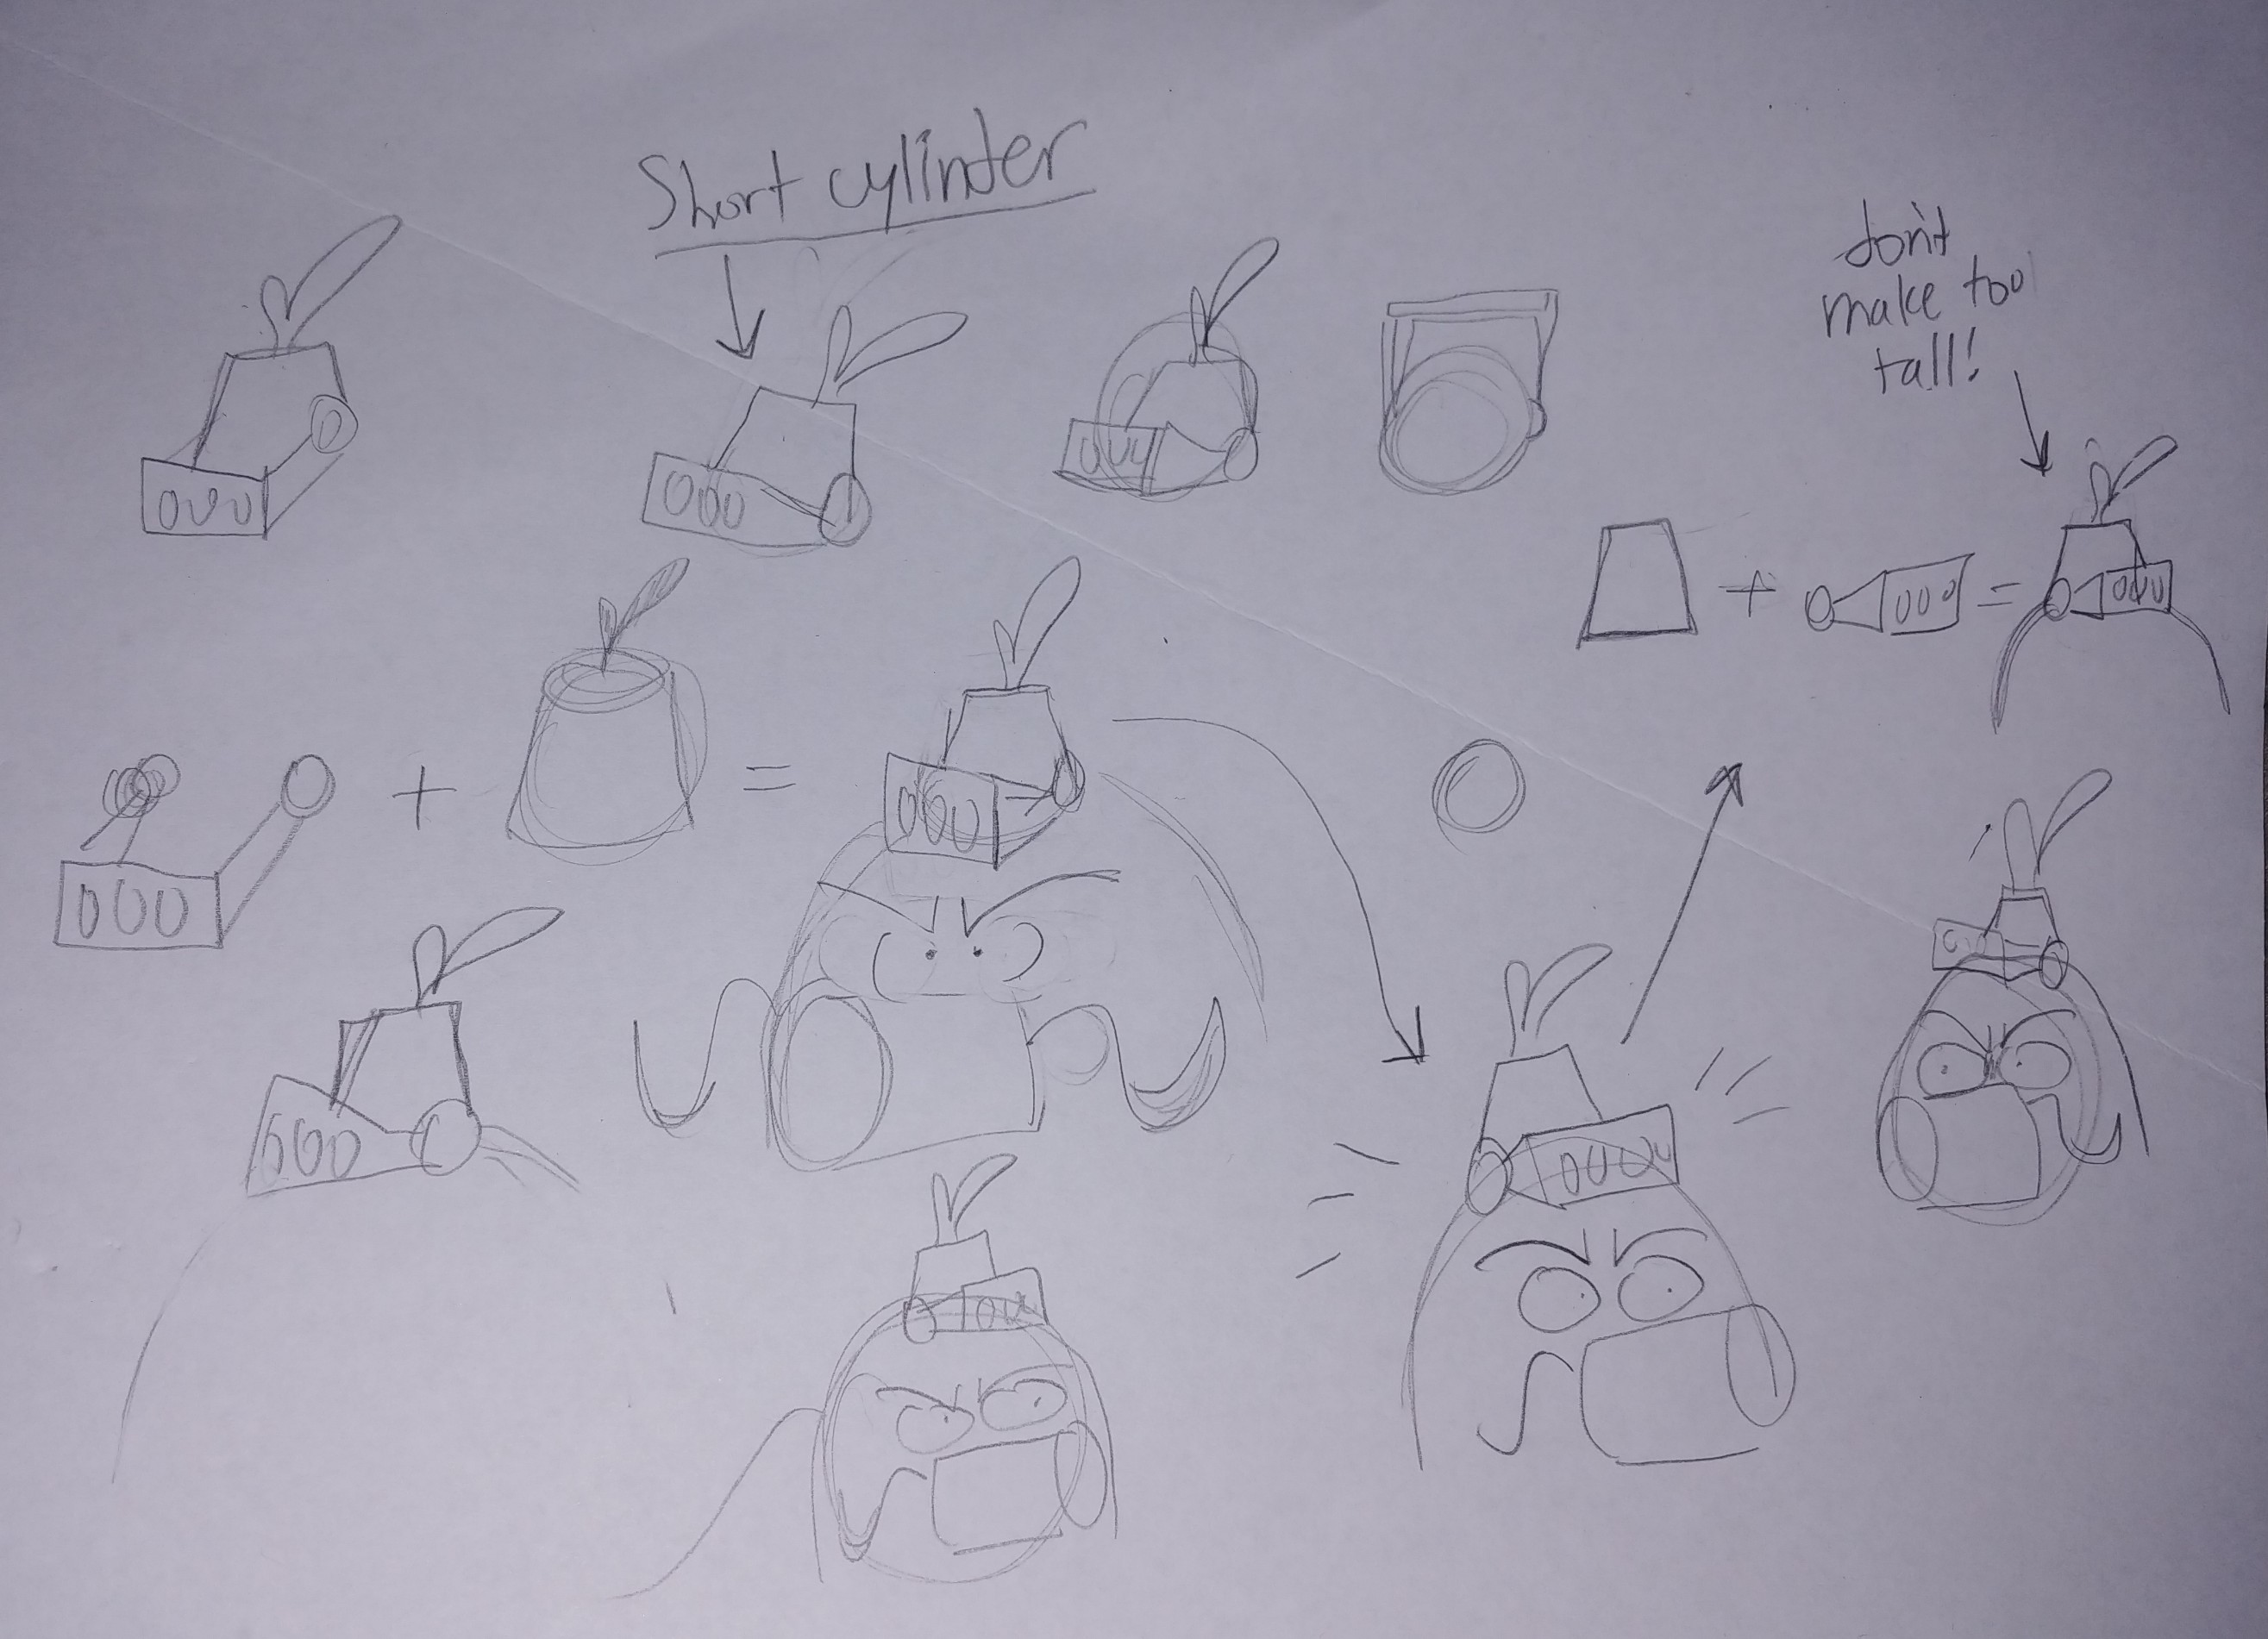 Short cylinder
don't
make too
tall!
+
=
+
=